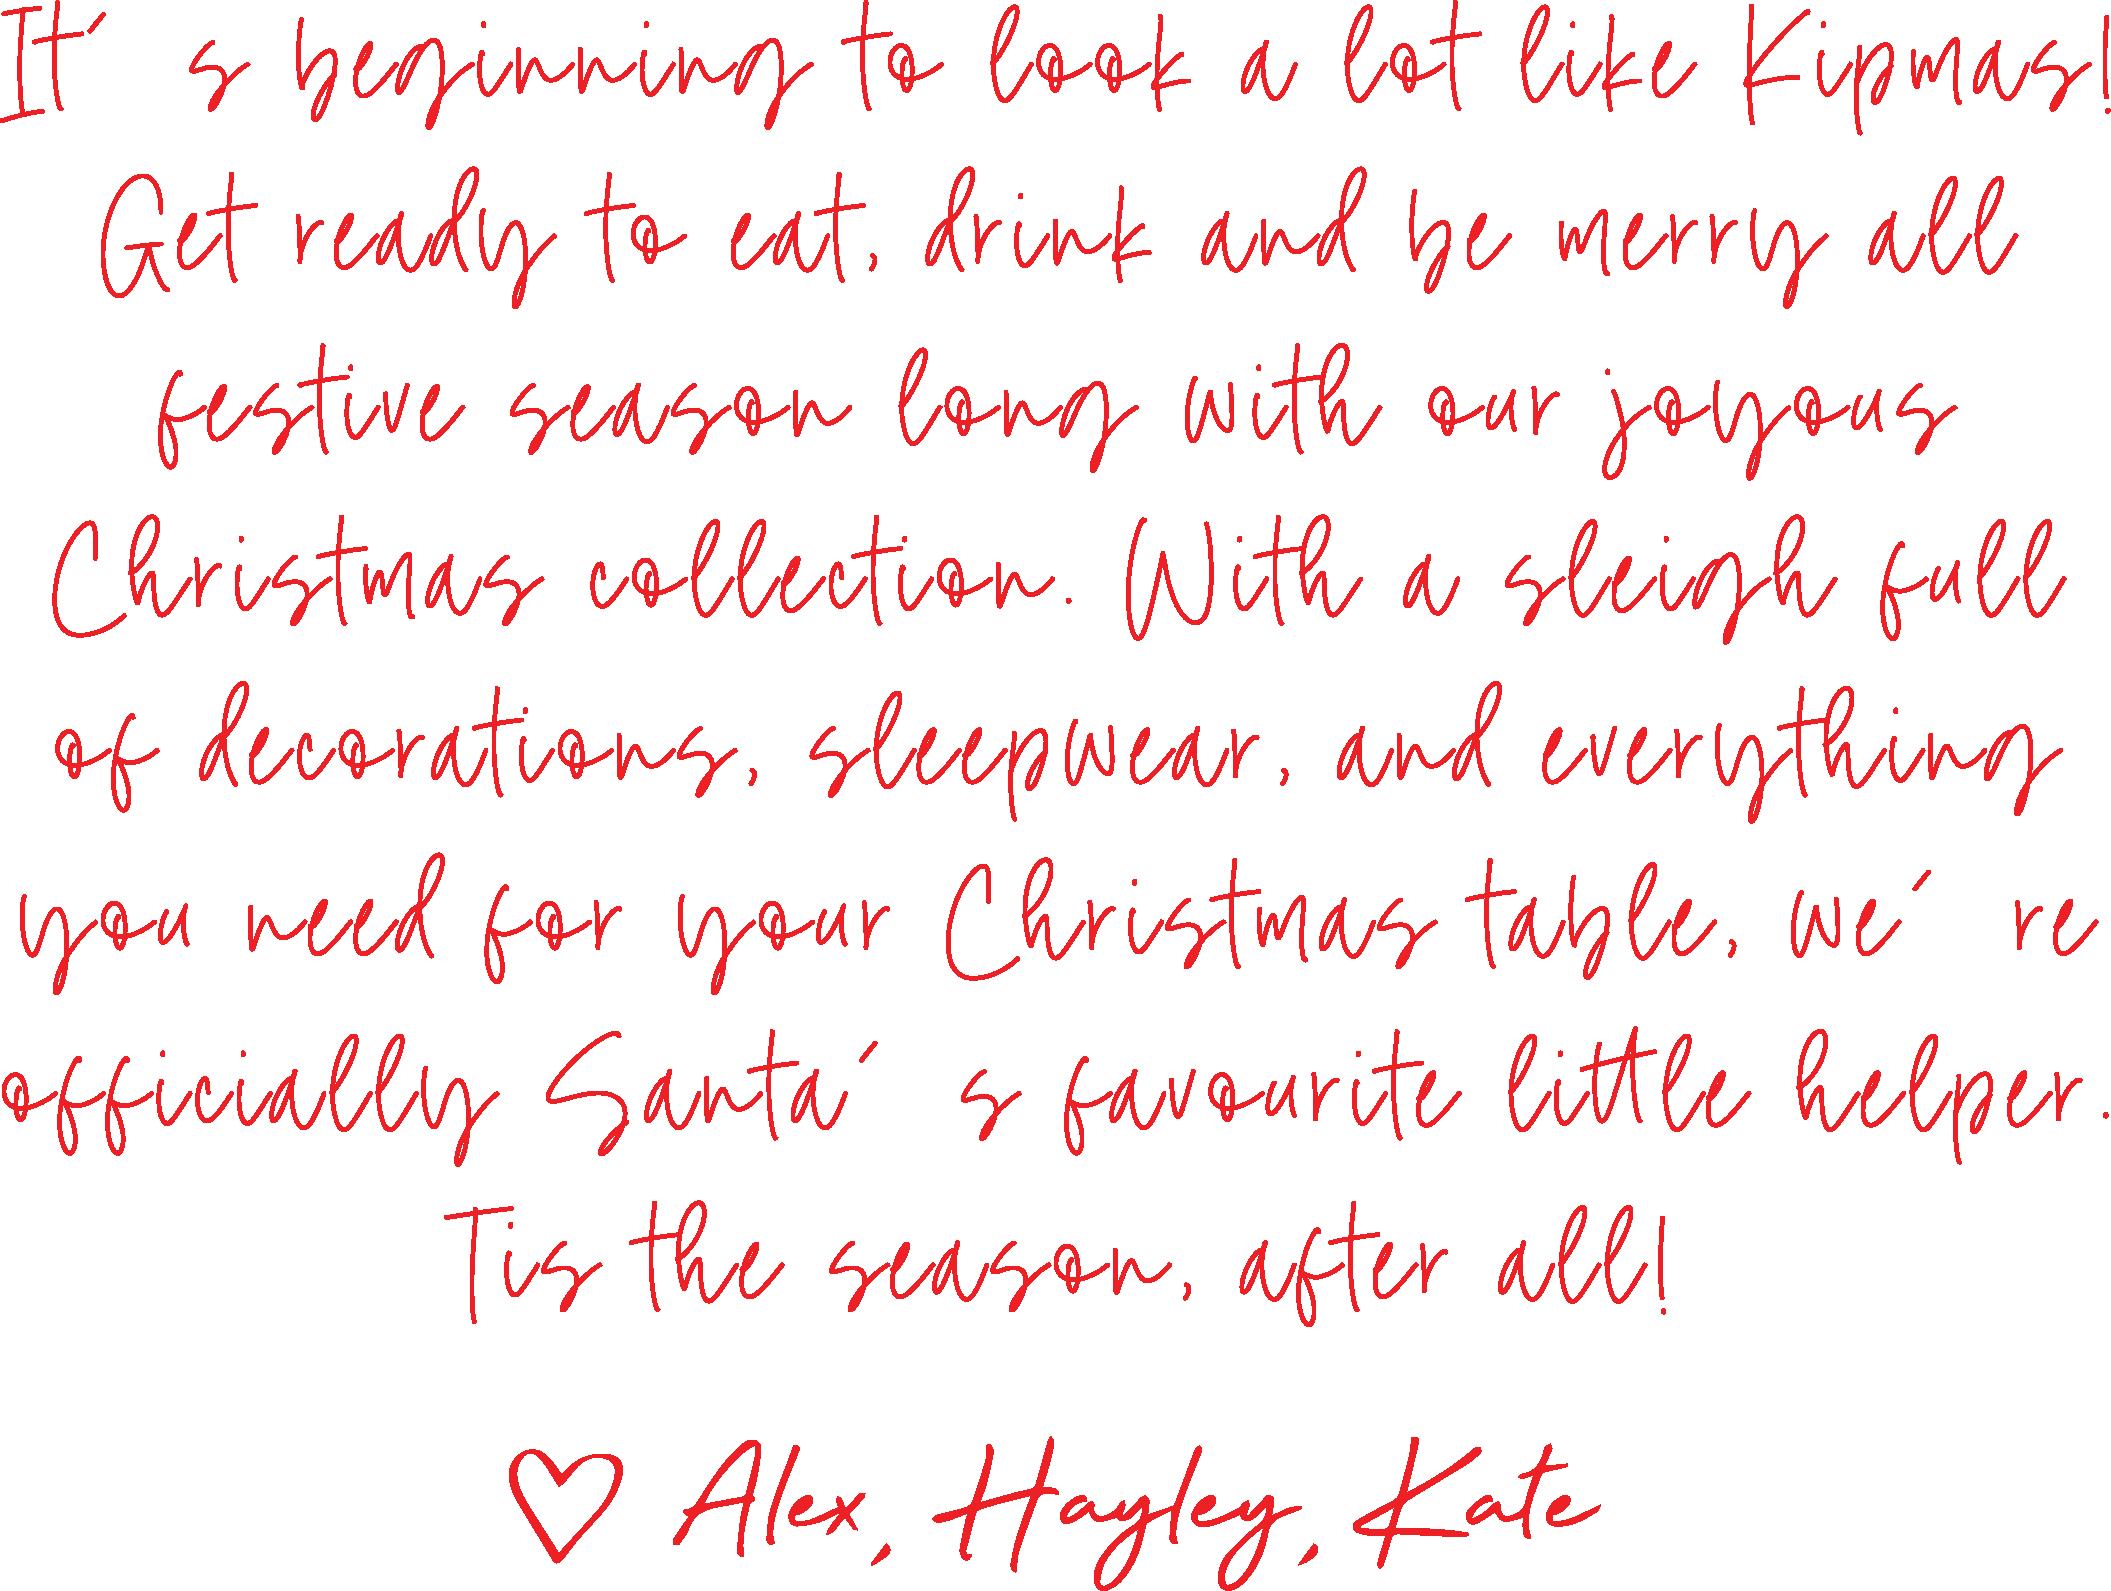 It's beginning to look a lot like Kipmas!
Get ready to eat, drink and be merry all
festive season long with our joyous
Christmas collection. With a sleigh full
of decorations, sleepwear, and everything
you need for your Christmas table, we're
officially Santa's favourite little helper.
Tis the season, after all!
♡ Alex, Hayley, Kate